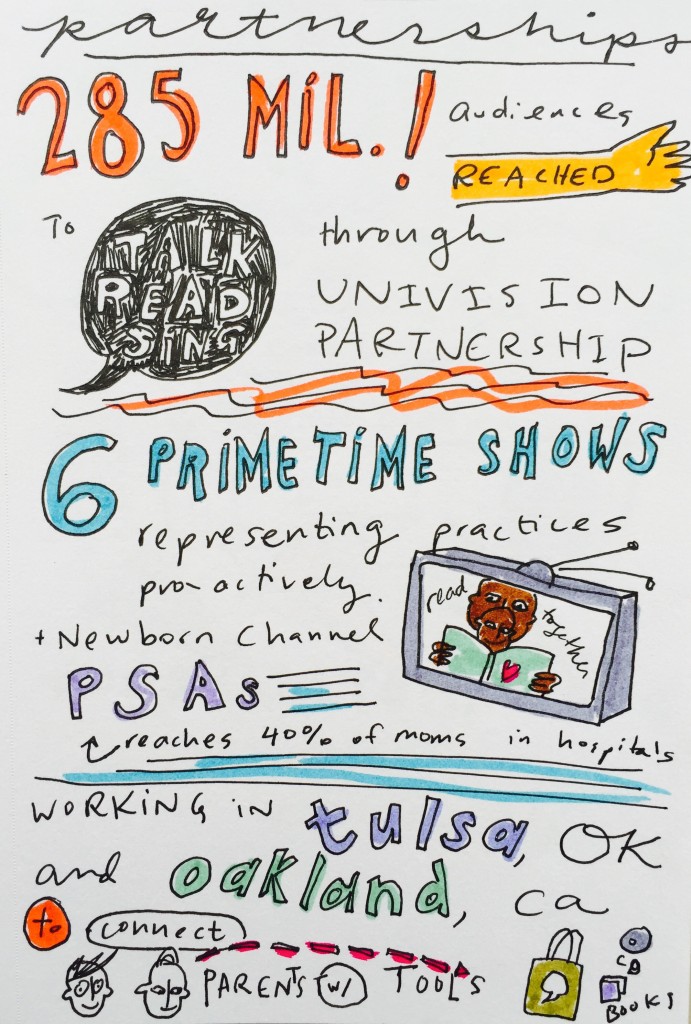 partnerships
285 MiL.!
audiences
REACHED
To
TALK
READ
SING
through
UNIVISION
PARTNERSHIP
6 PRiMETiME SHOWS
representing practices
pro-actively.
read
together
+ Newborn Channel
PSAs
reaches 40% of moms in hospitals
WORKING iN tulsa, OK
and oakland, ca
to connect
PARENTS w/ TOOLS
CD
BOOKS